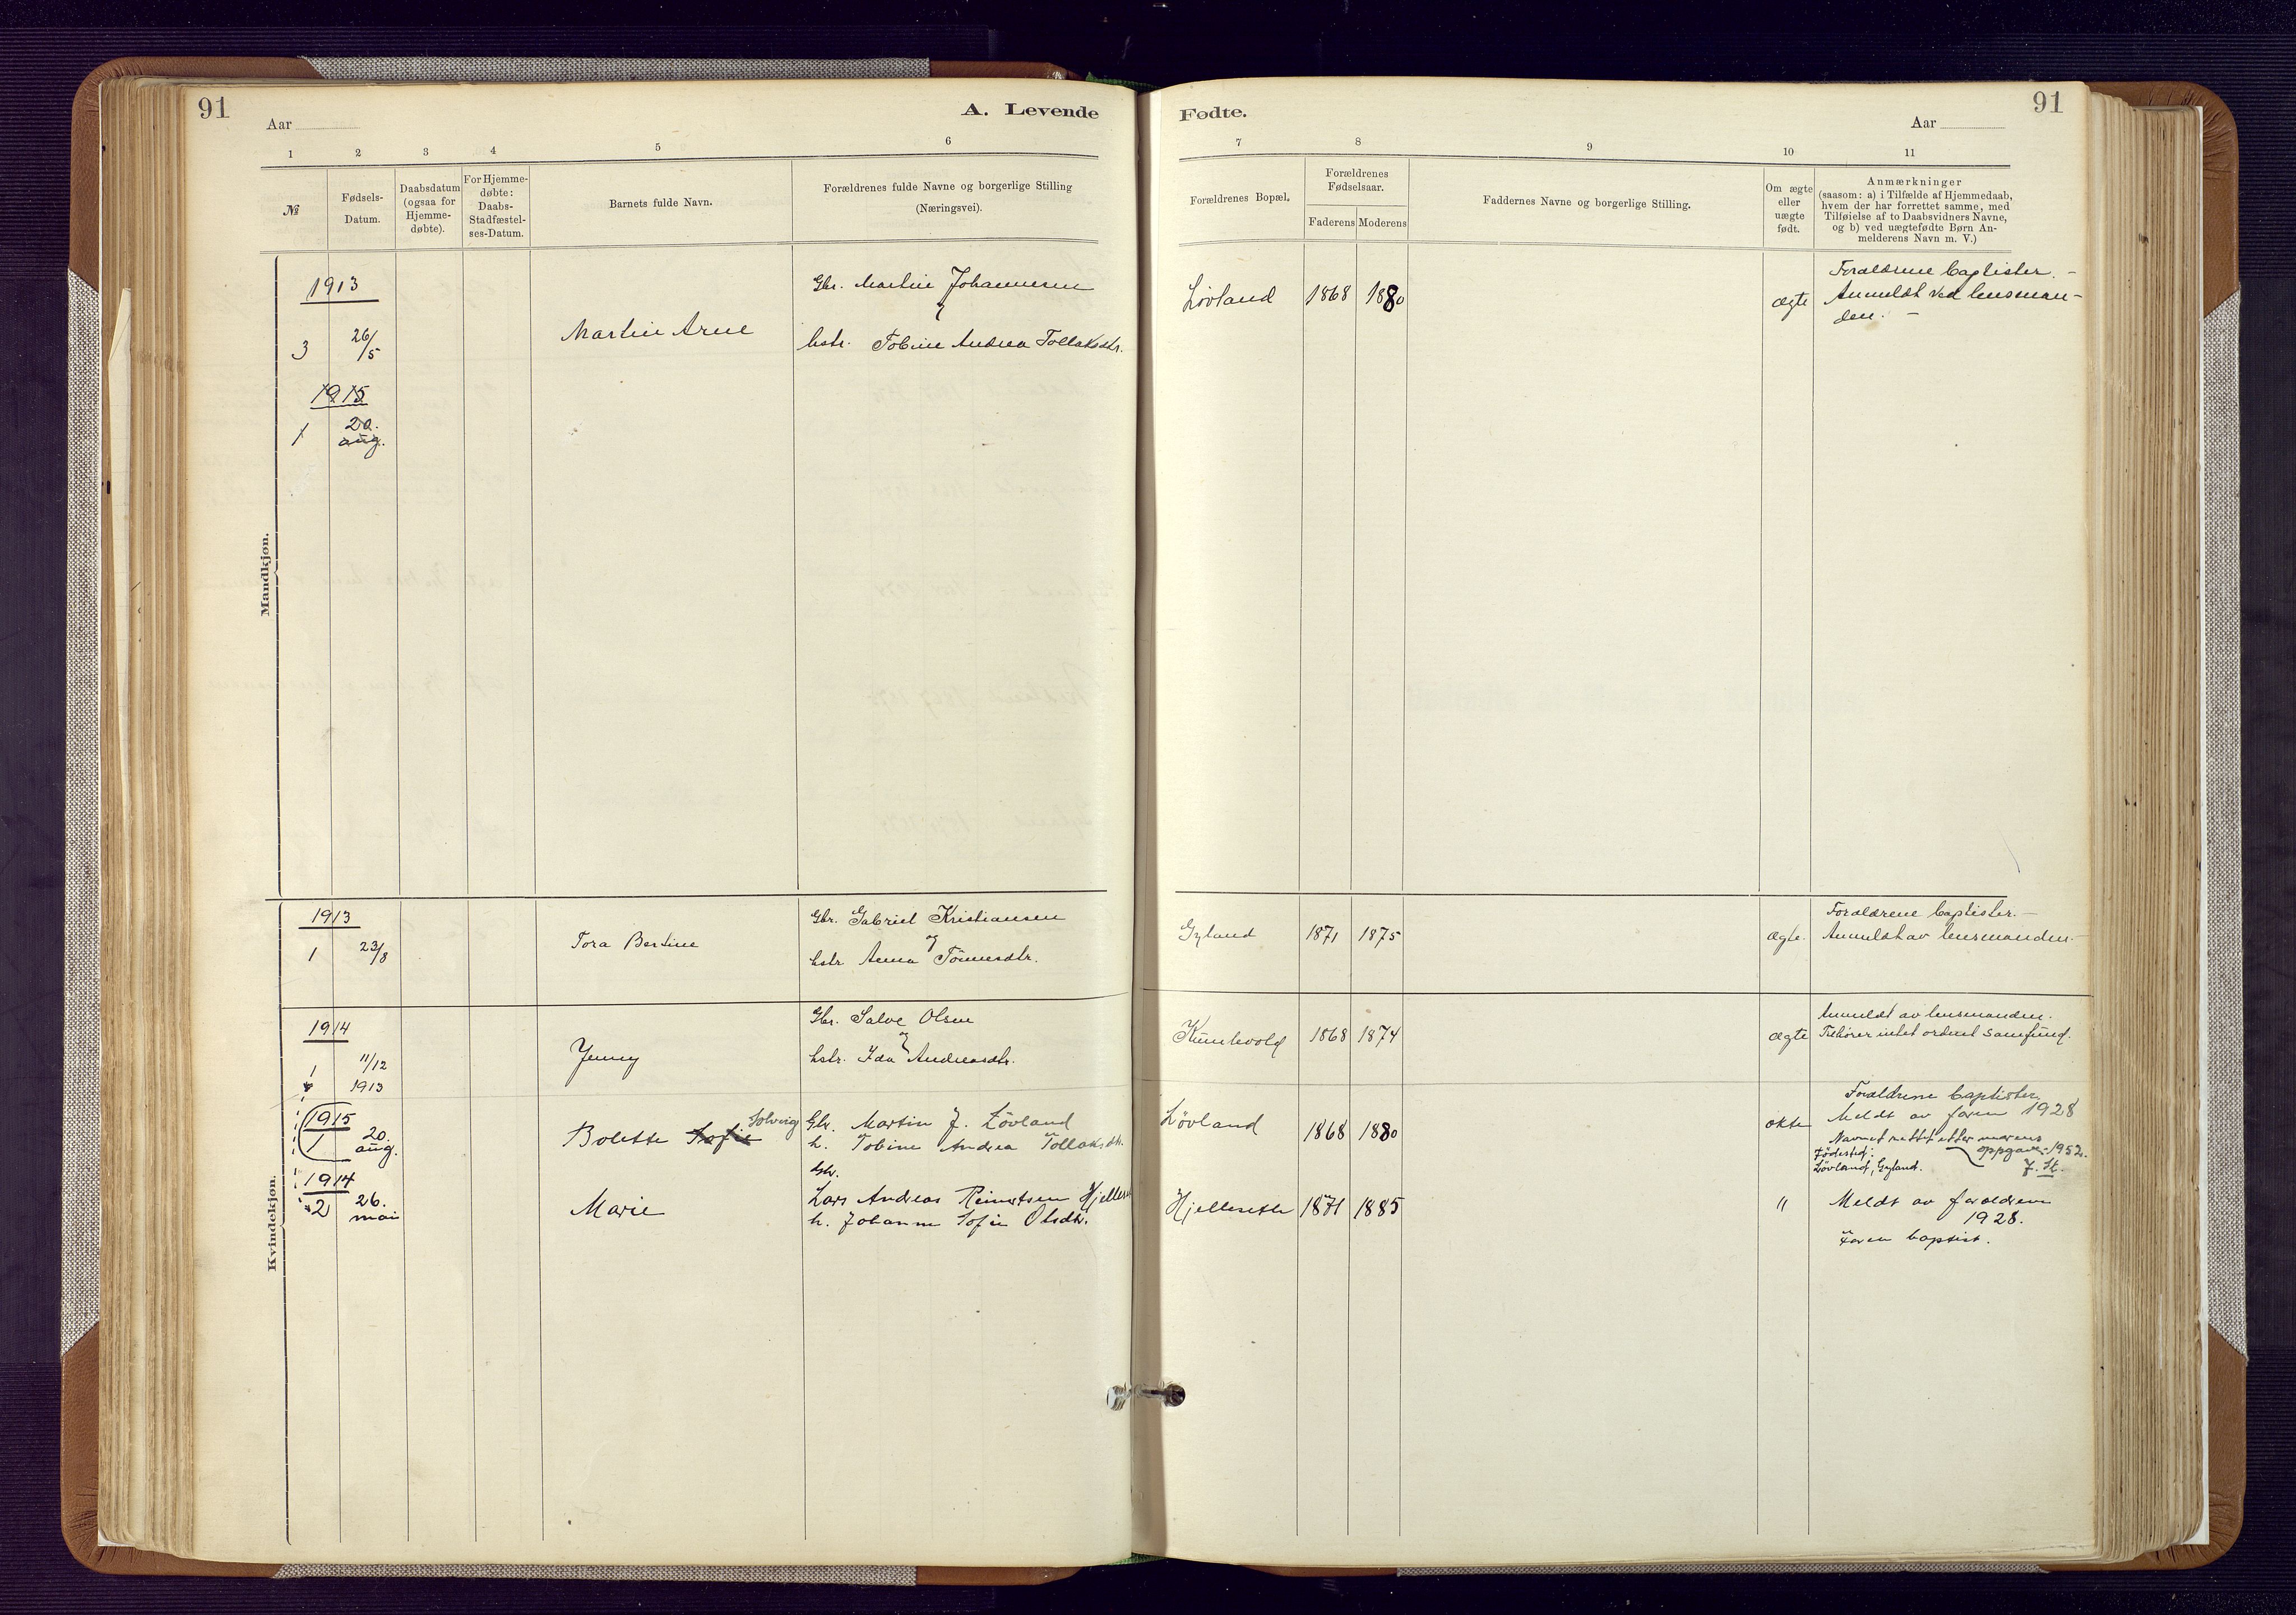 91
Aar
A. Levende
1 2 3 4 5 6
№
Fødsels-
Datum.
Daabsdatum
(ogsaa for
Hjemme-
døbte).
For Hjemme-
døbte:
Daabs-
Stadfæstel-
ses-Datum.
Barnets fulde Navn.
Forældrenes fulde Navne og borgerlige Stilling
(Næringsvei).
Mandkjøn.
1913
3 26/5
Martin Arne
Gbr. Martin Johannesen
og
hstr. Tobine Andrea Tollaksdtr.
1915
1 20.
aug.
Kvindekjøn.
1913
1 23/8
Tora Bertine
Gbr. Gabriel Kristiansen
og
hstr. Anna Tönnesdtr.
1914
1 11/12
1913
Jenny
Gbr. Salve Olsen
og
hstr. Ida Andreasdtr.
1915
1 20.
aug.
Bolette Sofie Solveig
Gbr. Martin J. Lövland
h. Tobine Andrea Tollaksdtr.
1914
2 26.
mai
Marie
Gbr.
Lars Andreas Reinertsen
h. Johanne Sofie Olsdtr.
Fødte.
91
Aar
7 8 9 10 11
Forældrenes Bopæl.
Forældrenes
Fødselsaar.
Faderens Moderens
Faddernes Navne og borgerlige Stilling.
Om ægte
eller
uægte
født.
Anmærkninger
(saasom: a) i Tilfælde af Hjemmedaab,
hvem der har forrettet samme, med
Tilføielse af to Daabsvidners Navne,
og b) ved uægtefødte Børn An-
melderens Navn m. V.)
Lövland 1868 1880
ægte
Forældrene baptister. -
Anmeldt ved lensman-
den. -
Gyland 1871 1875
ægte.
Forældrene baptister. -
Anmeldt av lensmanden. -
1868 1874
ægte
Anmeldt av lensmanden.
Tilhører intet ordnet samfund.
Lövland 1868 1880
ekte
Forældrene baptister.
Meldt av faren 1928
Navnet rettet etter morens
oppgave. 1952.
Födested:
Lövland, Gyland.
J. St.
Hjelleseth 1871 1885
"
Meldt av forældrene
1928.
Faren baptist.